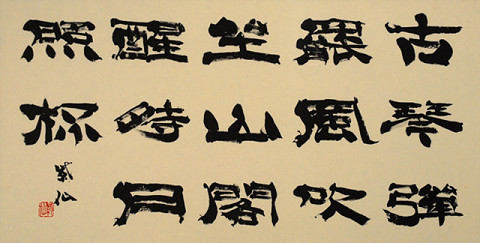 古琴彈
罷風吹
坐山閣
醒時月
照杯